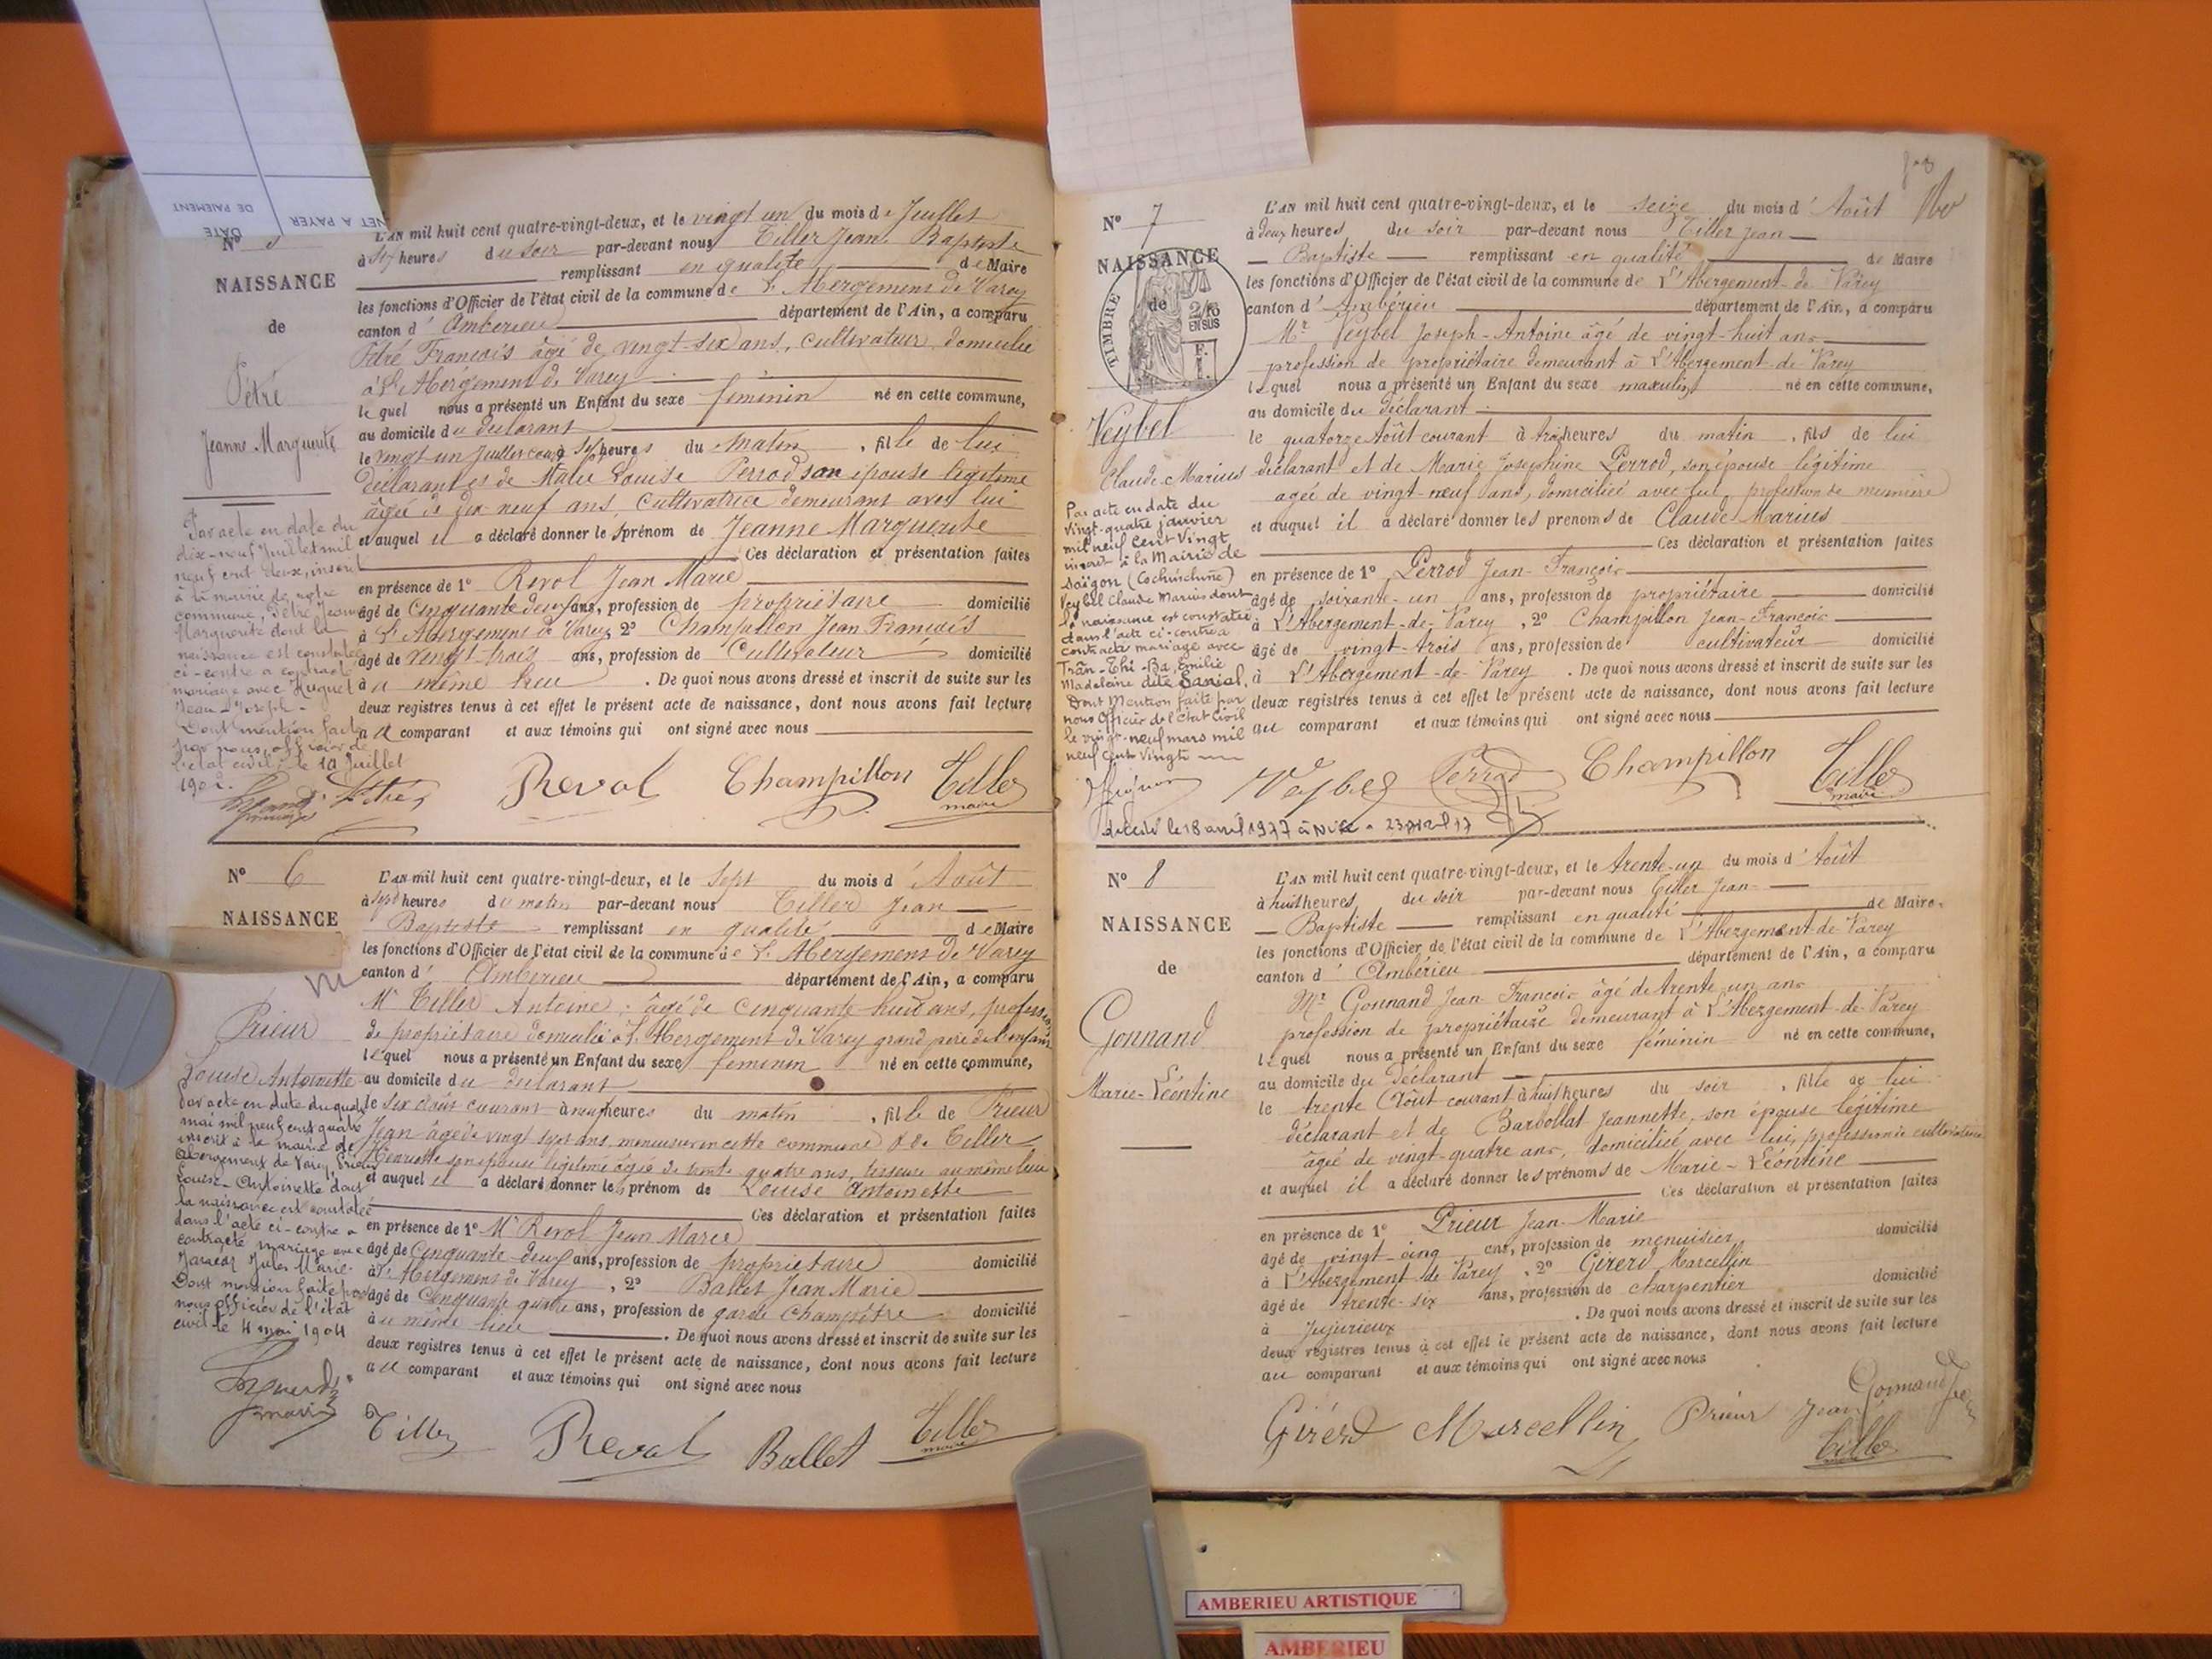 DATE
DE PAIEMENT
NET A PAYER
N° 5
NAISSANCE
de
Pétré
Jeanne Marguerite
L'AN mil huit cent quatre-vingt-deux, et le vingt un du mois de Juillet
à sept heures du soir par-devant nous Tiller Jean Baptiste
remplissant en qualité de Maire
les fonctions d'Officier de l'état civil de la commune de L'Abergement de Varey
canton d' Amberieu département de l'Ain, a comparu
Pétré François âgé de vingt-six ans, cultivateur domicilié
à L'Abergement de Varey
lequel nous a présenté un Enfant du sexe féminin né en cette commune,
au domicile du déclarant
le vingt un Juillet courant à sept heures du matin, fille de lui
déclarant et de Marie Louise Perrod son épouse légitime
âgée de dix neuf ans, cultivatrice demeurant avec lui
et auquel il a déclaré donner les prénom de Jeanne Marguerite
Ces déclaration et présentation faites
en présence de 1° Revol Jean Marie
âgé de Cinquante deux ans, profession de propriétaire domicilié
à L'Abergement de Varey, 2° Champillon Jean François
âgé de vingt trois ans, profession de Cultivateur domicilié
au même lieu. De quoi nous avons dressé et inscrit de suite sur les
deux registres tenus à cet effet le présent acte de naissance, dont nous avons fait lecture
au comparant et aux témoins qui ont signé avec nous
Par acte en date du
dix-neuf Juillet mil
neuf cent deux, inscrit
à la mairie de notre
commune, Pétré Jeanne
Marguerite dont la
naissance est constatée
ci-contre a contracté
mariage avec Huguet
Jean Joseph.
Dont mention faite
par nous, officier de
l'état civil, le 19 Juillet
1902.
Pétré Revol Champillon Tiller
maire
N° 6
NAISSANCE
Prieur
Louise Antoinette
L'AN mil huit cent quatre-vingt-deux, et le sept du mois d' Août
à sept heures du matin par-devant nous Tiller Jean
Baptiste remplissant en qualité de Maire
les fonctions d'Officier de l'état civil de la commune de L'Abergement de Varey
canton d' Amberieu département de l'Ain, a comparu
Mr Tiller Antoine, âgé de cinquante huit ans, profession
de propriétaire domicilié à L'Abergement de Varey grand père de l'enfant
lequel nous a présenté un Enfant du sexe féminin né en cette commune,
au domicile du déclarant
le six août courant à neuf heures du matin, fille de Prieur
Jean âgé de vingt sept ans, menuisier en cette commune & de Tiller
Henriette son épouse légitime âgée de trente quatre ans, au même lieu
et auquel il a déclaré donner les prénom de Louise Antoinette
Ces déclaration et présentation faites
en présence de 1° Mr Revol Jean Marie
âgé de Cinquante deux ans, profession de propriétaire domicilié
à L'Abergement de Varey, 2° Ballet Jean Marie
âgé de Cinquante quatre ans, profession de garde champêtre domicilié
au même lieu. De quoi nous avons dressé et inscrit de suite sur les
deux registres tenus à cet effet le présent acte de naissance, dont nous avons fait lecture
au comparant et aux témoins qui ont signé avec nous
Par acte en date du quatre
mai mil neuf cent quatre
inscrit à la mairie de
Abergement de Varey, Prieur
Louise-Antoinette dont
la naissance est constatée
dans l'acte ci-contre a
contracté mariage avec
Jules Marie.
Dont mention faite par
nous officier de l'état
civil le 4 mai 1904
maire
Tiller Revol Ballet Tiller
maire
N° 7
NAISSANCE
de
TIMBRE
2/10
EN SUS
Veybel
Claude Marius
L'AN mil huit cent quatre-vingt-deux, et le seize du mois d' Août
à deux heures du soir par-devant nous Tiller Jean
Baptiste remplissant en qualité de Maire
les fonctions d'Officier de l'état civil de la commune de L'Abergement-de-Varey
canton d' Ambérieu département de l'Ain, a comparu
Mr Veybel Joseph-Antoine âgé de vingt-huit ans
profession de propriétaire demeurant à L'Abergement-de-Varey
lequel nous a présenté un Enfant du sexe masculin né en cette commune,
au domicile du déclarant
le quatorze Août courant à trois heures du matin, fils de lui
déclarant et de Marie Joséphine Perrod, son épouse légitime
agée de vingt-neuf ans, domiciliée avec lui, profession de meunière
et auquel il a déclaré donner les prénoms de Claude Marius
Ces déclaration et présentation faites
en présence de 1° Perrod Jean-François
âgé de soixante-un ans, profession de propriétaire domicilié
à L'Abergement-de-Varey, 2° Champillon Jean-François
âgé de vingt-trois ans, profession de cultivateur domicilié
à L'Abergement-de-Varey. De quoi nous avons dressé et inscrit de suite sur les
deux registres tenus à cet effet le présent acte de naissance, dont nous avons fait lecture
au comparant et aux témoins qui ont signé avec nous
Par acte en date du
vingt-quatre janvier
mil neuf cent vingt
inscrit à la Mairie de
Saïgon (Cochinchine)
Veybel Claude Marius dont
la naissance est constatée
dans l'acte ci-contre a
contracté mariage avec
Trân-Thi-Ba Emilie
Madeleine dite Sanial,
Dont Mention faite par
nous Officier de l'état Civil
le vingt-neuf mars mil
neuf cent vingt
Veybel Perrod Champillon Tiller
maire
décédé le 18 avril 1977 à Nice
N° 8
NAISSANCE
de
Gonnand
Marie-Léontine
L'AN mil huit cent quatre-vingt-deux, et le trente-un du mois d' Août
à huit heures du soir par-devant nous Tiller Jean
Baptiste remplissant en qualité de Maire
les fonctions d'Officier de l'état civil de la commune de L'Abergement-de-Varey
canton d' Ambérieu département de l'Ain, a comparu
Mr Gonnand Jean-François âgé de trente un ans
profession de propriétaire demeurant à L'Abergement-de-Varey
lequel nous a présenté un Enfant du sexe féminin né en cette commune,
au domicile du déclarant
le trente Août courant à huit heures du soir, fille de lui
déclarant et de Bardollat Jeannette, son épouse légitime
âgée de vingt-quatre ans, domiciliée avec lui, profession de cultivatrice
et auquel il a déclaré donner les prénoms de Marie-Léontine
Ces déclaration et présentation faites
en présence de 1° Prieur Jean-Marie
âgé de vingt-cinq ans, profession de menuisier domicilié
à L'Abergement-de-Varey, 2° Girerd Marcellin
âgé de trente-six ans, profession de charpentier domicilié
à Jujurieux. De quoi nous avons dressé et inscrit de suite sur les
deux registres tenus à cet effet le présent acte de naissance, dont nous avons fait lecture
au comparant et aux témoins qui ont signé avec nous
Girerd Marcellin Prieur Jean Gonnand
Tiller
maire
AMBERIEU ARTISTIQUE
AMBERIEU